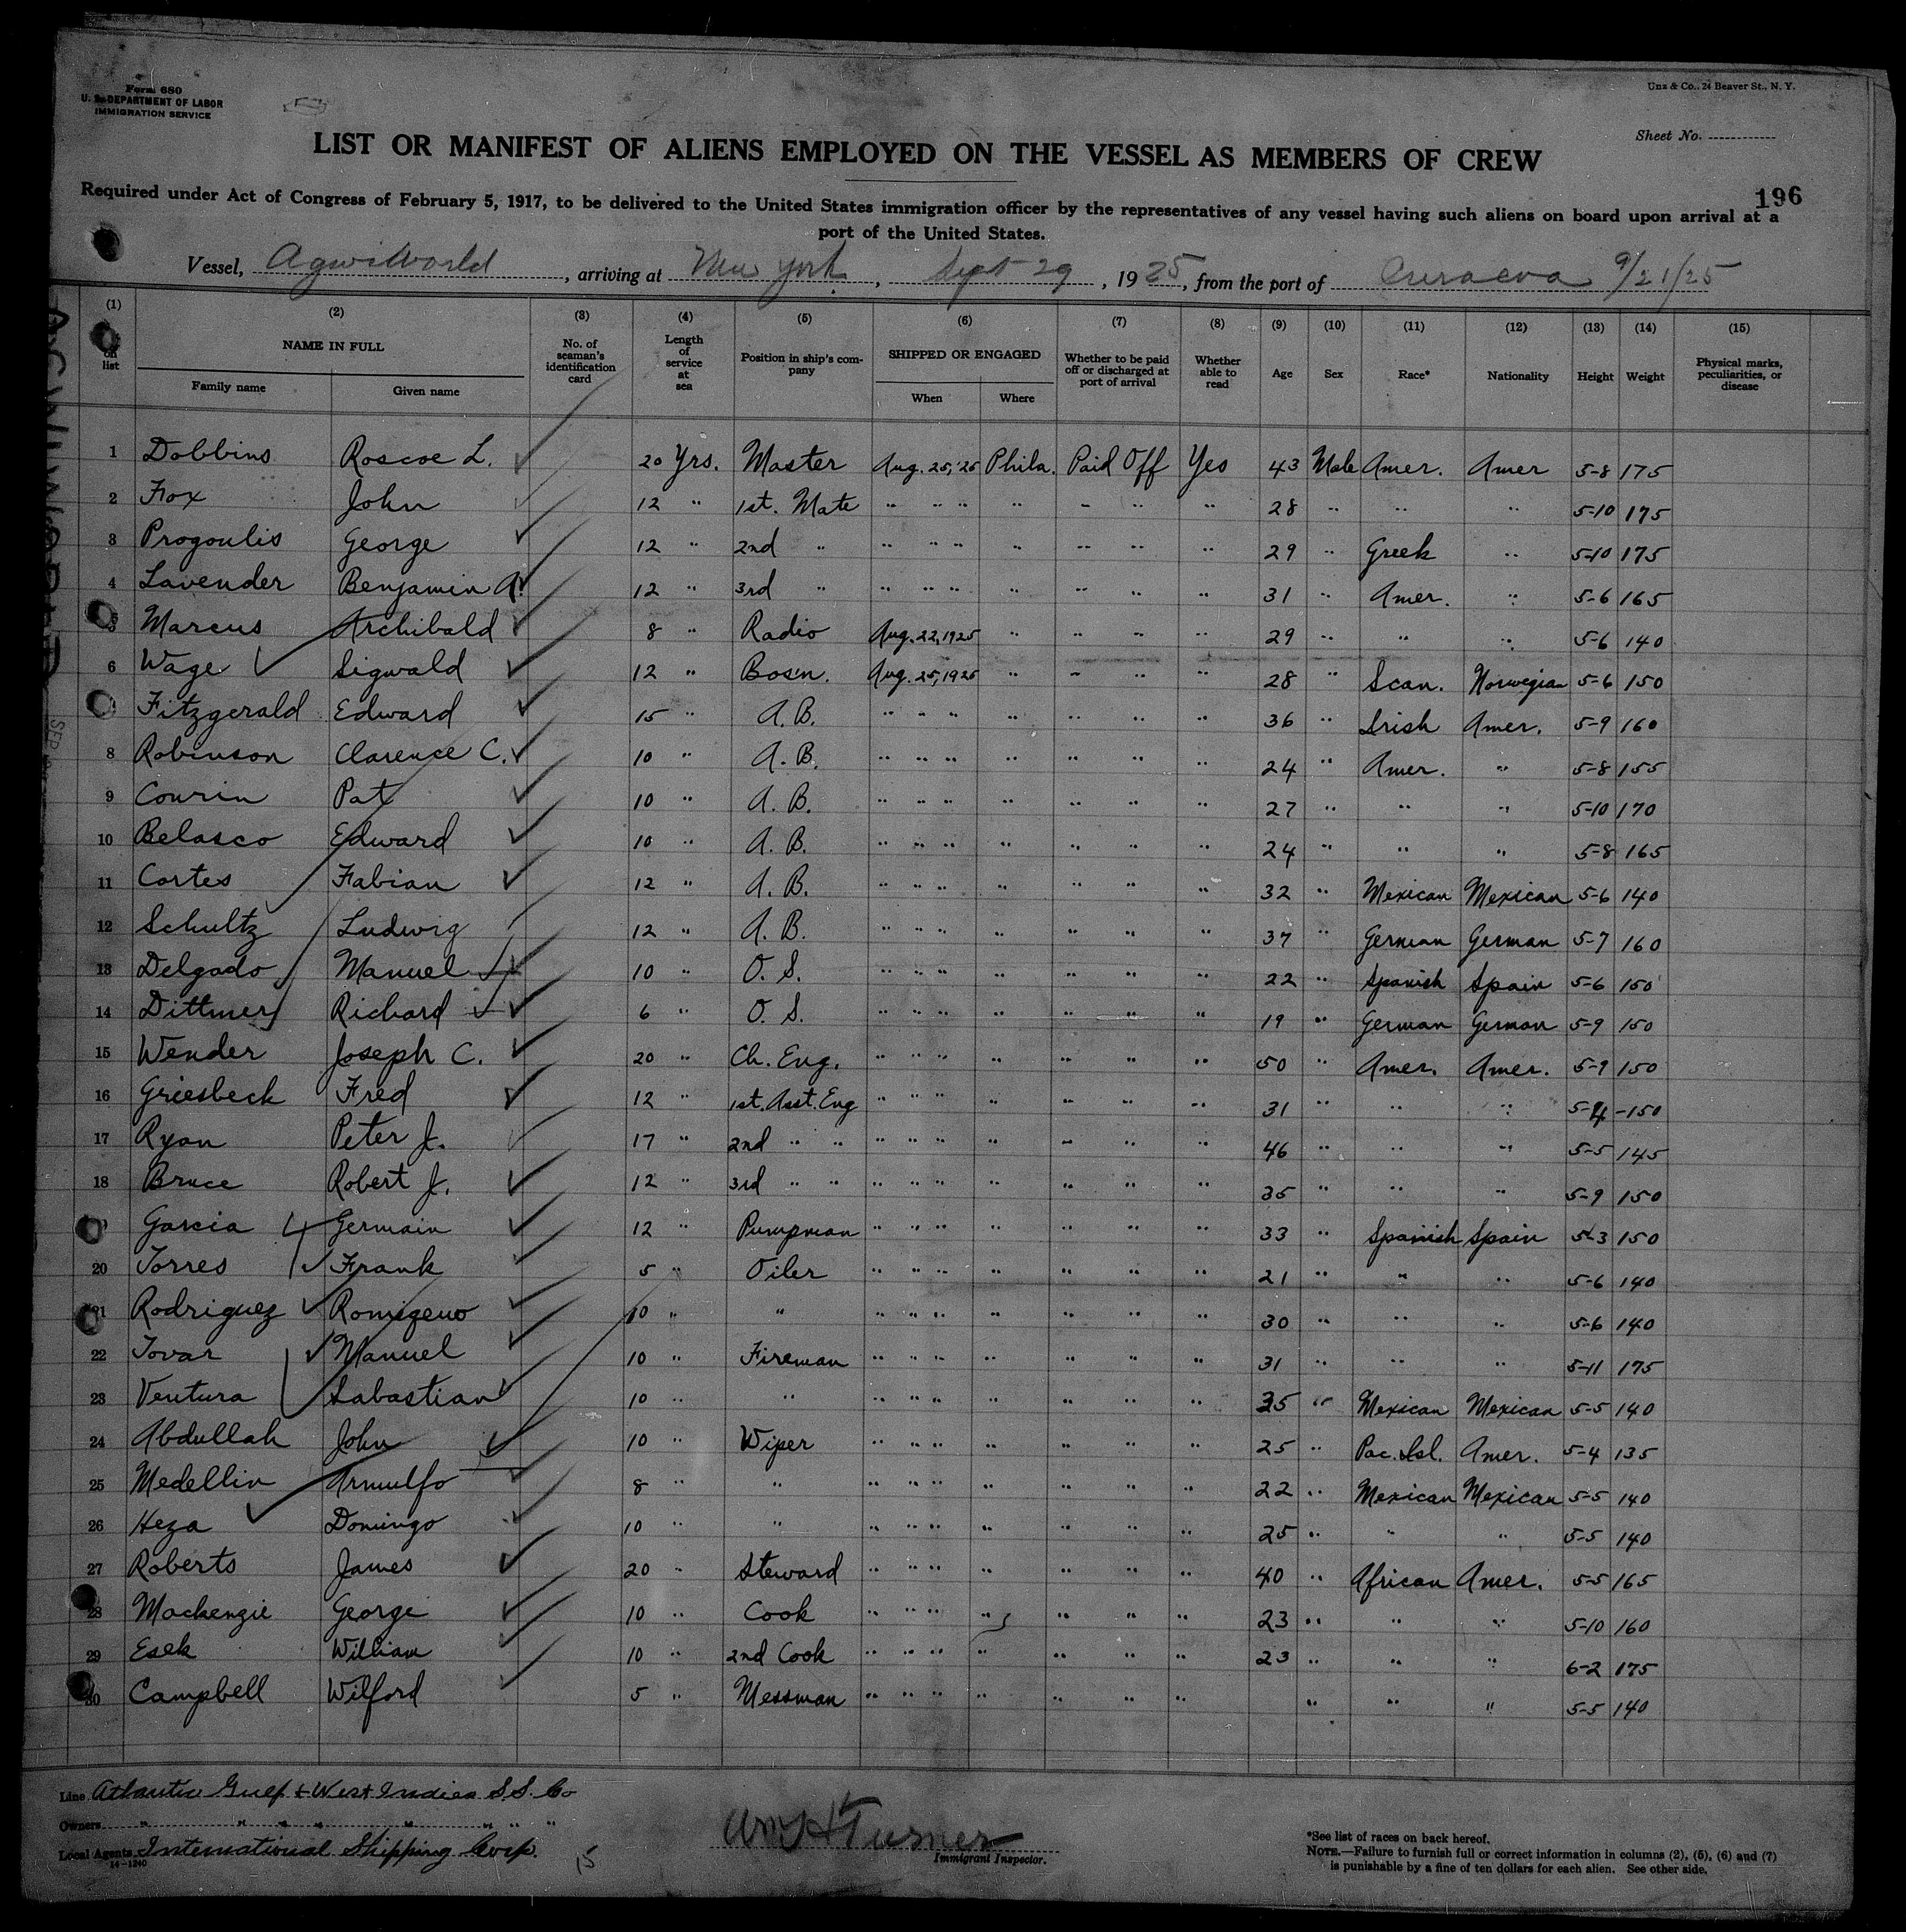 Form 680
U. S. DEPARTMENT OF LABOR
IMMIGRATION SERVICE
Unz & Co., 24 Beaver St., N. Y.
Sheet No.
LIST OR MANIFEST OF ALIENS EMPLOYED ON THE VESSEL AS MEMBERS OF CREW
196
Required under Act of Congress of February 5, 1917, to be delivered to the United States immigration officer by the representatives of any vessel having such aliens on board upon arrival at a
port of the United States.
Vessel, Agwiworld, arriving at New York, Sept 29, 1925, from the port of Curacoa 9/21/25
(1) (2) (3) (4) (5) (6) (7) (8) (9) (10) (11) (12) (13) (14) (15)
on list NAME IN FULL Family name Given name No. of seaman's identification card Length of service at sea Position in ship's company SHIPPED OR ENGAGED When Where Whether to be paid off or discharged at port of arrival Whether able to read Age Sex Race* Nationality Height Weight Physical marks, peculiarities, or disease
1 Dobbins Roscoe L. 20 Yrs. Master Aug. 25,'25 Phila. Paid Off Yes 43 Male Amer. Amer 5-8 175
2 Fox John 12 " 1st. Mate " " " " " " " 28 " " " 5-10 175
3 Progoulis George 12 " 2nd " " " " " " " " 29 " Greek " 5-10 175
4 Lavender Benjamin A. 12 " 3rd " " " " " " " " 31 " Amer. " 5-6 165
5 Marcus Archibald 8 " Radio Aug. 22, 1925 " " " " 29 " " " 5-6 140
6 Wage Sigwald 12 " Bosn. Aug. 25, 1925 " " " " 28 " Scan. Norwegian 5-6 150
Fitzgerald Edward 15 " A. B. " " " " " " " 36 " Irish Amer. 5-9 160
8 Robinson Clarence C. 10 " A. B. " " " " " " " 24 " Amer. " 5-8 155
9 Courin Pat 10 " A. B. " " " " " " " 27 " " " 5-10 170
10 Belasco Edward 10 " A. B. " " " " " " " 24 " " " 5-8 165
11 Cortes Fabian 12 " A. B. " " " " " " " 32 " Mexican Mexican 5-6 140
12 Schultz Ludwig 12 " A. B. " " " " " " " 37 " German German 5-7 160
13 Delgado Manuel 10 " O. S. " " " " " " " 22 " Spanish Spain 5-6 150
14 Dittmer Richard 6 " O. S. " " " " " " " 19 " German German 5-9 150
15 Wender Joseph C. 20 " Ch. Eng. " " " " " " " 50 " Amer. Amer. 5-9 150
16 Griesbeck Fred 12 " 1st. Asst. Eng " " " " " " " 31 " " " 5-4 -150
17 Ryan Peter J. 17 " 2nd " " " " " " " " " 46 " " " 5-5 145
18 Bruce Robert J. 12 " 3rd " " " " " " " " " 35 " " " 5-9 150
Garcia Germain 12 " Pumpman " " " " " " " 33 " Spanish Spain 5-3 150
20 Torres Frank 5 " Oiler " " " " " " " 21 " " " 5-6 140
21 Rodriguez Romigeno 10 " " " " " " " " " 30 " " " 5-6 140
22 Tovar Manuel 10 " Fireman " " " " " " " 31 " " " 5-11 175
23 Ventura Sabastian 10 " " " " " " " " " 35 " Mexican Mexican 5-5 140
24 Abdullah John 10 " Wiper " " " " " " " 25 " Pac. Isl. Amer. 5-4 135
25 Medellin Arnulfo 8 " " " " " " " " " 22 " Mexican Mexican 5-5 140
26 Heza Domingo 10 " " " " " " " " " 25 " " " 5-5 140
27 Roberts James 20 " Steward " " " " " " " 40 " African Amer. 5-5 165
28 Mackenzie George 10 " Cook " " " " " " " 23 " " " 5-10 160
29 Esek William 10 " 2nd Cook " " " " " " " 23 " " " 6-2 175
30 Campbell Wilford 5 " Messman " " " " " " " " " " 5-5 140
Line Atlantic Gulf & West Indies S.S. Co
Owners " " " " " " " "
Local Agents International Shipping Corp. 15
14-1240
Wm H Turner
Immigrant Inspector.
*See list of races on back hereof.
NOTE.—Failure to furnish full or correct information in columns (2), (5), (6) and (7)
is punishable by a fine of ten dollars for each alien. See other side.